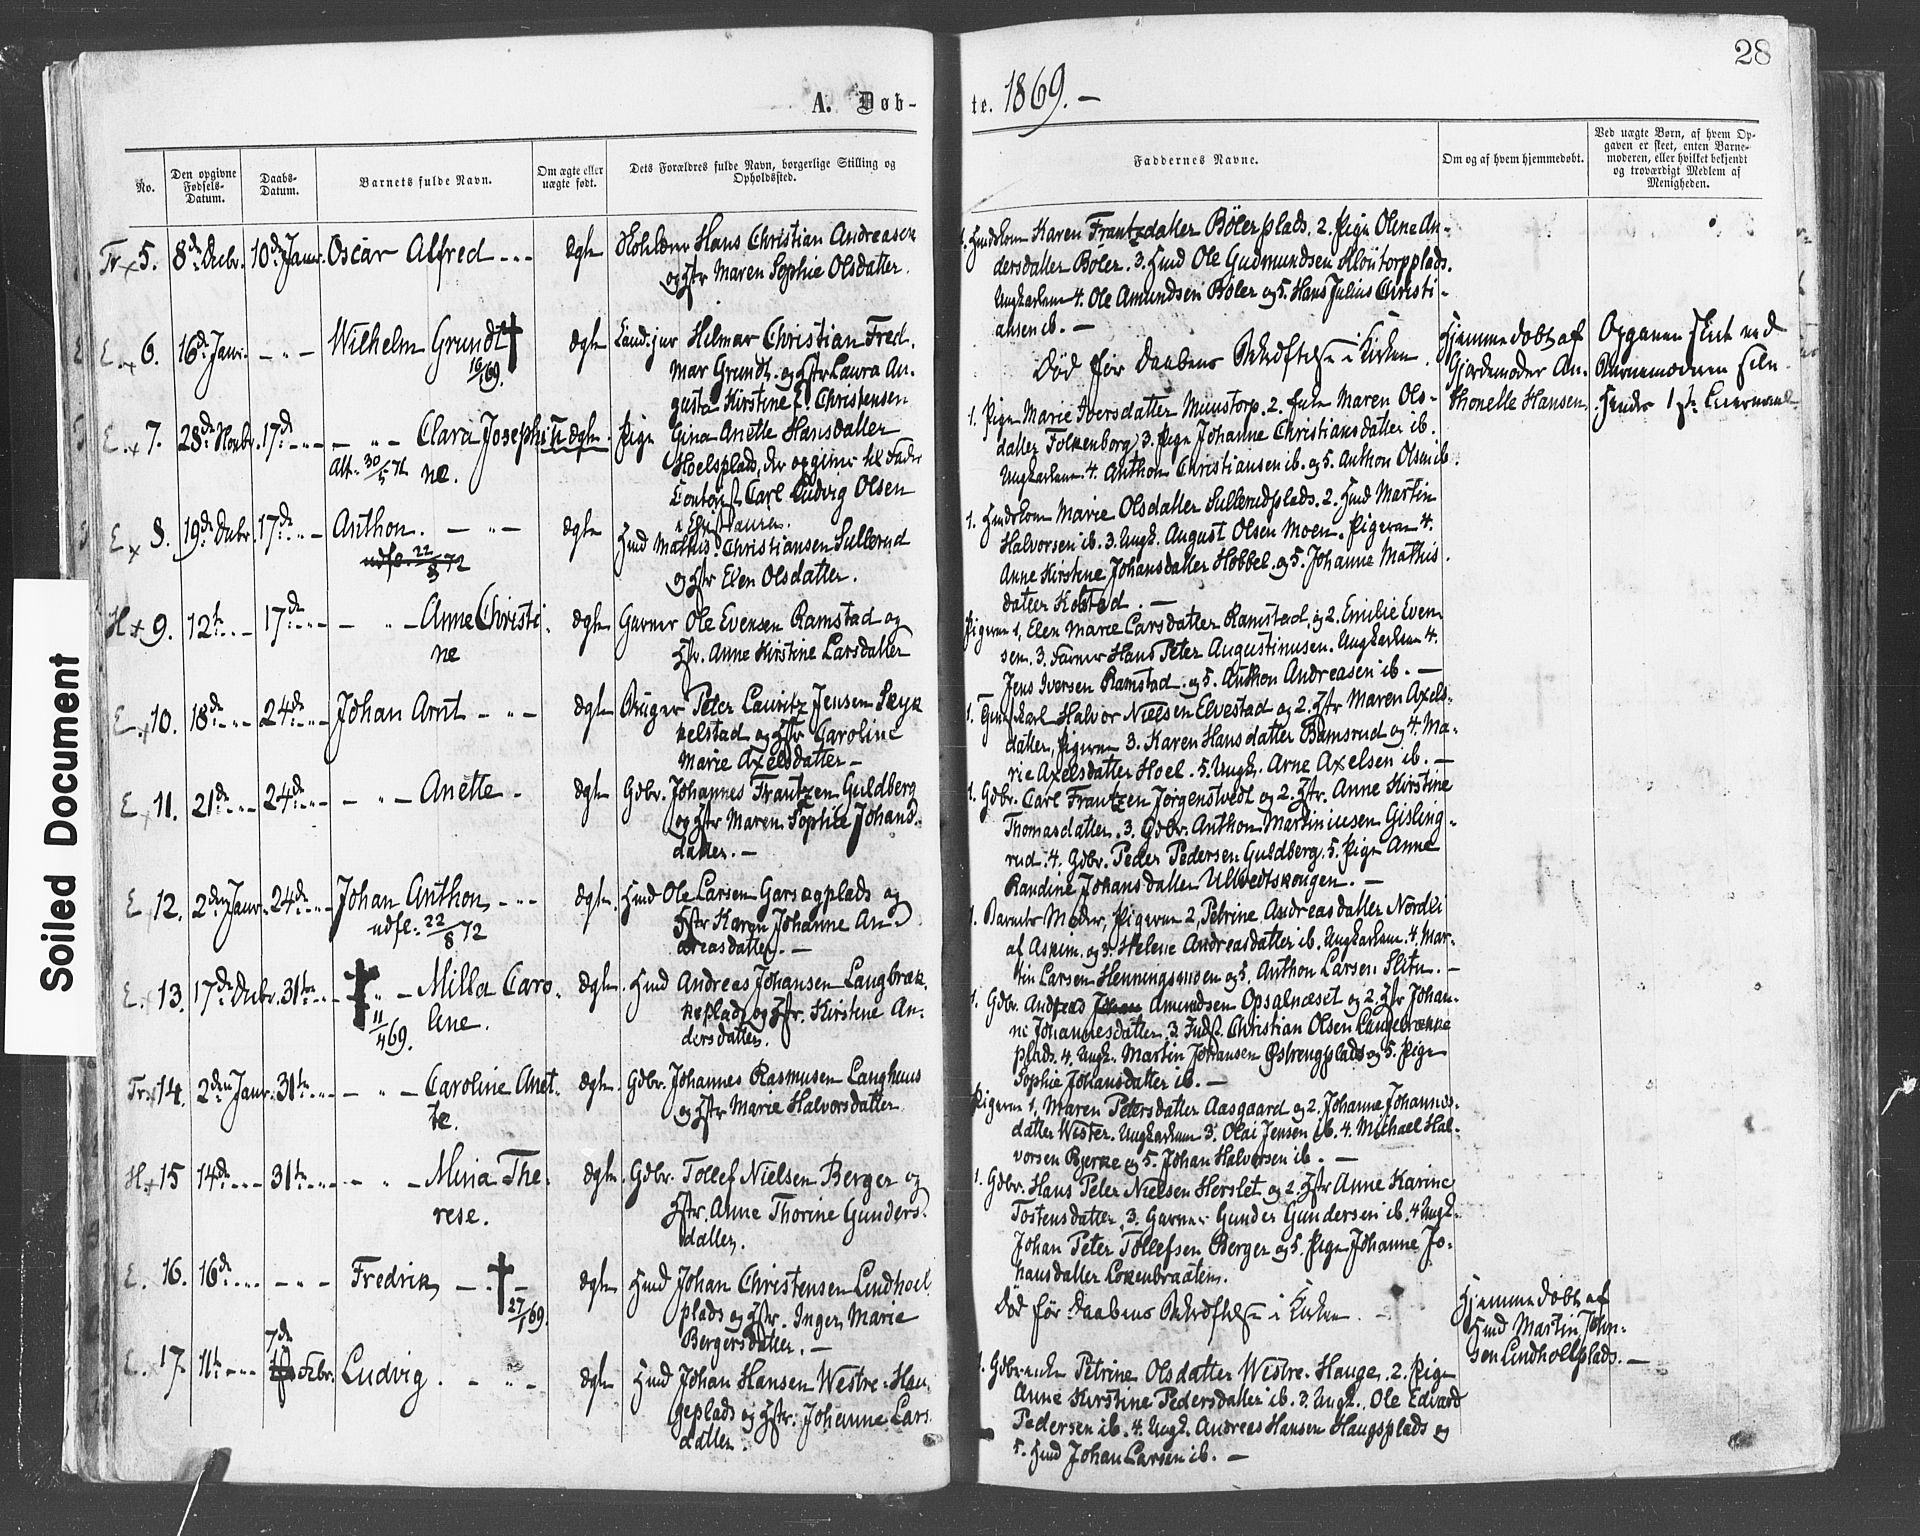 28
A. Døb-
te. 1869. —
No.
Den opgivne Fødsels-Datum.
Daabs-Datum.
Barnets fulde Navn.
Om ægte eller uægte født.
Dets Forældres fulde Navn, borgerlige Stilling og Opholdssted.
Faddernes Navne.
Om og af hvem hjemmedøbt.
Ved uægte Børn, af hvem Op-
gaven er skeet, enten Barne-
moderen, eller hvilket bekjendt
og troværdigt Medlem af
Menigheden.
Tr x 5. 8de Decbr. 10de Janr. Oscar Alfred - - - ægte Hans Christian Andreasen
og Hstr Maren Sophie Olsdatter.
Karen Frantzdatter Bölerplads. 2. Pige Oline An-
dersdatter Böler. 3. Hmd Ole Gudmundsen Klöutorpplads.
Ungkarlene 4. Ole Amundsen Böler og 5. Hans Julius Christi-
ansen ib. —
E. x 6. 16de Janr. - " - Wilhelm Grundt † 16/1 69. ægte Hilmar Christian Fred.
mar Grundt. og Hstr Laura Au-
gusta Kirstine f. Christensen
Död för Daabens Bekræftelse i Kirken.
Hjemmedöbt af
Gjordemoder An-
thonette Hansen
Opgaven skeet ved
Barnemoderen
E. x 7. 28de Novbr. 17de - " - - " - Clara Josephi-
ne. uægte. Pige Gina Anette Hansdatter
Hoelsplads, der opgiver til Fader
Carl Ludvig Olsen
Att. 30/5 76
1. Pige Marie Iversdatter Munstorp. 2. Enke Maren Ols-
datter Folkenborg, 3. Pige Johanne Christiansdatter ib.
Ungkarlene 4. Anthon Christiansen ib. og 5. Anthon Olsen ib.
E. x 8. 19de Decbr. 17de - " - Anthon. - " - ægte Hmd Mathis Christiansen Sullerud
og Hstr Elen Olsdatter.
udfl. 22/8 72
1. Marie Olsdatter Sullerudplads. 2. Hmd Martin
Halvorsen ib. 3. Ungk. August Olsen Moen. Pigerne 4.
Anne Kirstine Johansdatter Hobbel. og 5. Johanne Mathis
datter Kolstad. —
H x 9. 12te - - 17de - " - - " - Anne Christi-
ne ægte Garver Ole Evensen Ramstad og
Hstr. Anne Kirstine Larsdatter
Pigerne 1. Elen Marie Larsdatter Ramstad. og 2. Emilie Even
sen. 3. Farver Hans Peter Augustinusen. Ungkarlene 4.
Jens Iversen Ramstad. og 5. Anthon Andreasen ib. —
E. x 10. 18de - " - 24de - " - Johan Arnt - " - ægte Bruger Peter Lauritz Jensen Skyk
kelstad og Hstr Caroline
Marie Axelsdatter —
Halvor Nielsen Elvestad og 2. Hstr Maren Axels-
datter, Pigerne 3. Karen Hansdatter Bamsrud og 4. Ma-
rie Axelsdatter Hoel. 5. Ungk. Arne Axelsen ib. —
E x 11. 21de - " - 24de - " - - " - Anette - ægte Gdbr. Johannes Frantzen Guldberg
og Hstr Maren Sophie Johans
datter. —
1. Gdbr. Carl Frantzen Jörgenstvedt og 2. Hstr. Anne Kirstine
Thomasdatter. 3. Gdbr. Anthon Martiniusen Gisling-
rud. 4. Gdbr. Peder Pedersen Guldberg. 5. Pige Anne
Randine Johansdatter Ullvedtskougen. —
E x 12. 2den Janr. 24de - " - Johan Anthon - - - ægte. Hmd Ole Larsen Garsegplads og
Hstr Karen Johanne An-
dreasdatter. —
udfl. 22/8 72
1. Barnets Moder, Pigerne 2, Petrine Andreasdatter Nordli
af Askim. og 3. Helene Andreasdatter ib. Ungkarlene. 4. Mar-
tin Larsen Henningsmoen og 5. Anthon Larsen Slitu. —
E. x 13. 17de Decbr. 31te - " - † " - Milla Caro-
line. 11/4 69. ægte. Hmd Andreas Johansen Langbræk.
keplads og Hstr. Kirstine An-
dersdatter.
1. Gdbr. Andreas Amundsen Opsalnæset og 2. Hstr Johan-
ne Johannesdatter. 3. Christian Olsen Langebrække
plads. 4. Ungk. Martin Johansen Östrengplads og 5. Pige
Sophie Johansdatter ib. —
Tr x 14. 2den Janr. 31te - " - - " - Caroline Anet-
te. ægte Gdbr. Johannes Rasmusen Langhuus
og Hstr Marie Halvorsdatter
Pigerne 1. Maren Petersdatter Aasgaard og 2. Johanne Johannes-
datter Wester. Ungkarlene 3. Olai Jensen ib. 4. Michael Hal-
vorsen Bjerke og 5. Johan Halvorsen ib. —
H x 15 14de - - - 31te - " - - " - Mina The-
rese. ægte. Gdbr. Tollef Nielsen Berger og
Hstr. Anne Thorine Gunders-
datter.
1. Gdbr. Hans Peter Nielsen Herslet og 2. Hstr Anne Karine
Tostensdatter, 3. Garver Gunder Gundersen ib. 4 Ungk.
Johan Peter Tollefsen Berger og 5. Pige Johanne Jo-
hansdatter Lokenbraaten.
E. 16. 16de - - - - " - Fredrik - † 27/1 69. ægte Hmd Johan Christensen Lindhoel
plads og Hstr. Inger Marie
Bergersdatter. —
Död för Daabens Bekræftelse i Kirken. —
Hjemmedöbt af
Hmd Martin John-
sen Lindholtplads. —
E. x 17. 11te - - - 7de Febr. Ludvig. - " - ægte Hmd Johan Hansen Westre-Hau-
geplads og Hstr: Johanne Lars
datter.
1. Petrine Olsdatter Westre-Hauge. 2. Pige
Anne Kirstine Pedersdatter ib. 3. Ungk. Ole Edvard
Pedersen ib. 4. Ungk. Andreas Hansen Haugsplads og
5. Hmd Johan Larsen ib. —
Soiled Document